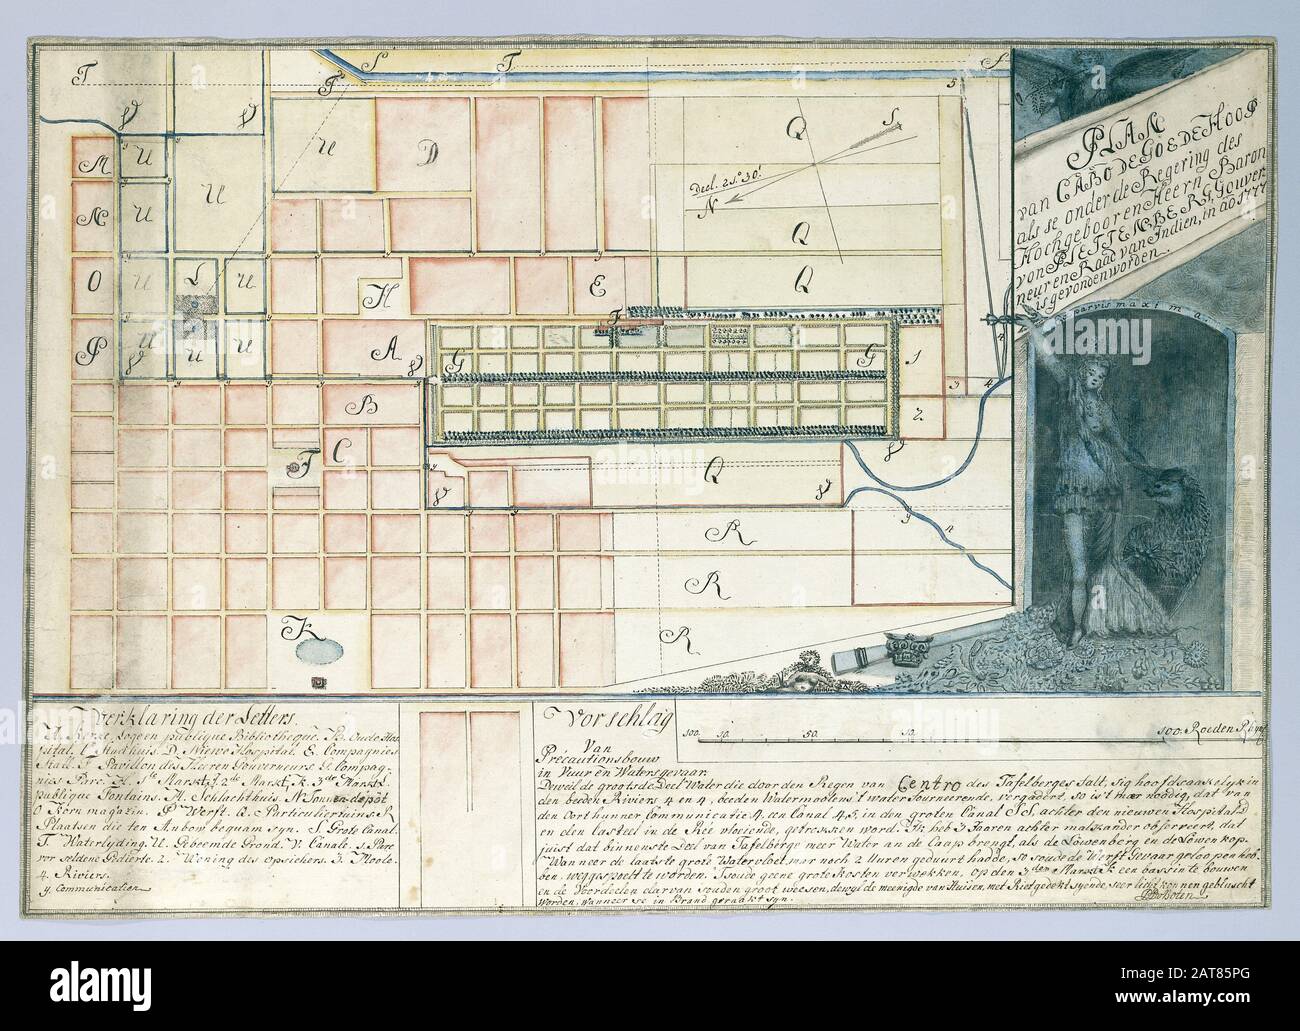 PLAN
van CABO DE GOEDE HOOP
als se onder de Regering des
Hochgebooren Heern Baron
von PLETTENBERG, Gouver
neur en Raad van Indien, in ao 1777
is gevonden worden
parvis maxima
S T S
T T 5
V V
M U U D Q
S
Decl. 21° 30'
N
N U U
Q
O U L U H E Q
F
P V U U A V G G 1
3 4
B 2
C V
I
Q V
V
R
R
K R
Verklaring der Letters.
publique Bibliotheque. B. Oude Hos
pital, C. Stadhuis D. Niewe Hospital. E. Compagnies
Stall. F. Pavillon des Heeren Gouverneurs G. Compag-
nies Parc. H. 1te Markt, I 2de Markt, K. 3de Markt L.
publique Fontains. M. Schlachthuis. N. Tonnen depot
O Korn magazin. P Werft. Q. Particuliertuins. R
Plaatsen die ten Anbow bequam syn. S. Grote Canal.
T. Waterlyding. U. Gebeemde Grond. V. Canale. 1. Parc
vor seldene Gedierte. 2. Woning des opsichers. 3. Moole.
4. Riviers.
y. Communication
Vorschlag
Van
Précautionsbouw
in Vuur en Watersgevaar.
100. 50. 10. 50. 100. Roeden Rhynl
Deweil de grootste Deel Water die door den Regen van Centro des Tafelberges dalt, sig hoofdsaakelyk in
den beiden Riviers 4 en 4, beeden Watermoolens 't water fourneerende, vergadert, so is't meer noodig, dat van
den Oort hunner Communicatie 4, een Canal 4, 5, in den groten Canal SS, achter den nieuwen Hospitald
en den lasteel in de Ree vloeiende, getrokken word. Ik heb 3 Jaaren achter malkander observeert, dat
juist dat binnenste Deel van Tafelberge meer Water an de Caap brengt, als de Löwenberg en de Löwenkop.
Wanneer de laatste grote Watervloet mar noch 2 Uuren geduurt hadde, so soude de Werft Gevaar geloopen heb.
ben, weggespoelt te worden. Tsoude geene grote Kosten verwekken, op den 3den Markt K een bassin te bouwen
en de Voordeelen daarvan souden groot weesen, dewyl de meenigte van Huisen, met Riet gedekt synde, seer licht konnen gebluscht
worden, wanneer se in Brand geraakt syn.
alamy
Image ID: 2AT85PG
www.alamy.com